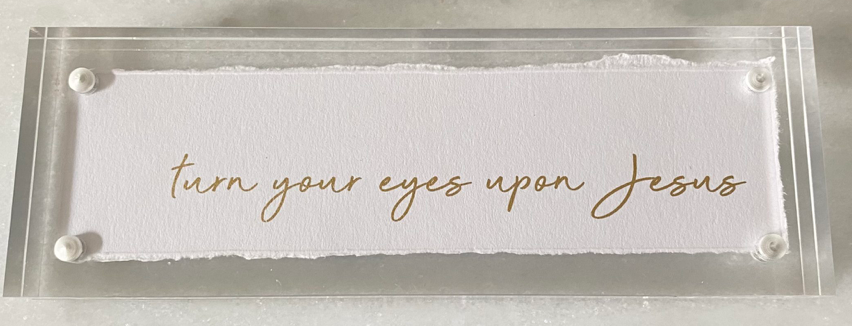 turn your eyes upon Jesus